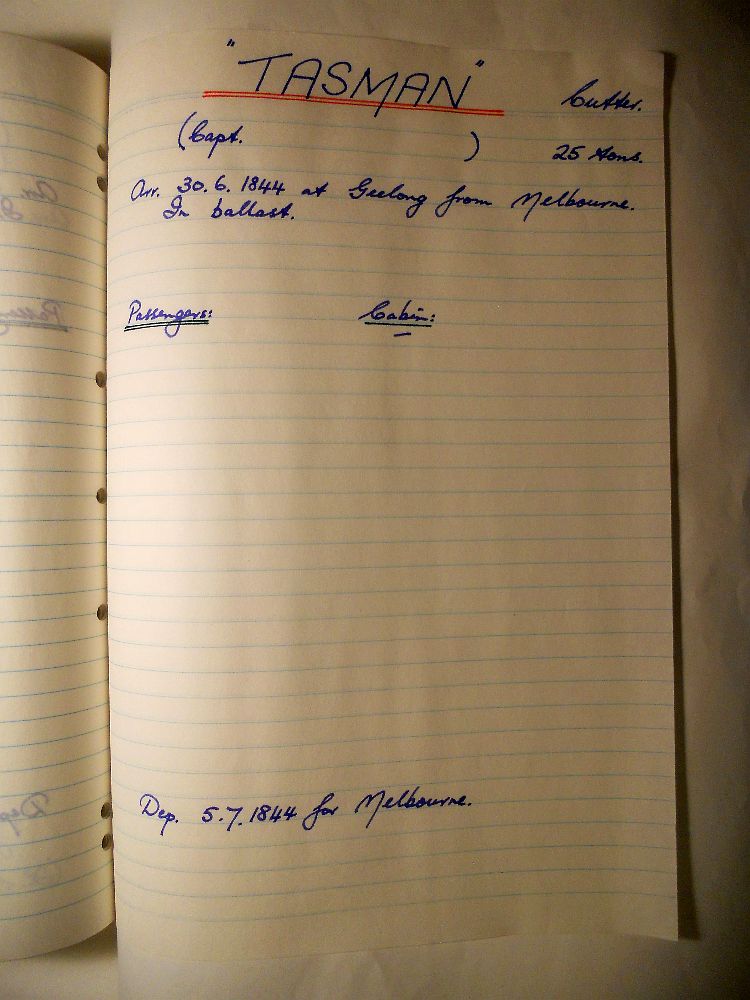 "TASMAN"
Cutter.
(Capt. )
25 tons.
Arr. 30.6.1844 at Geelong from Melbourne.
In ballast.
Passengers: Cabin:
–
Dep. 5.7.1844 for Melbourne.